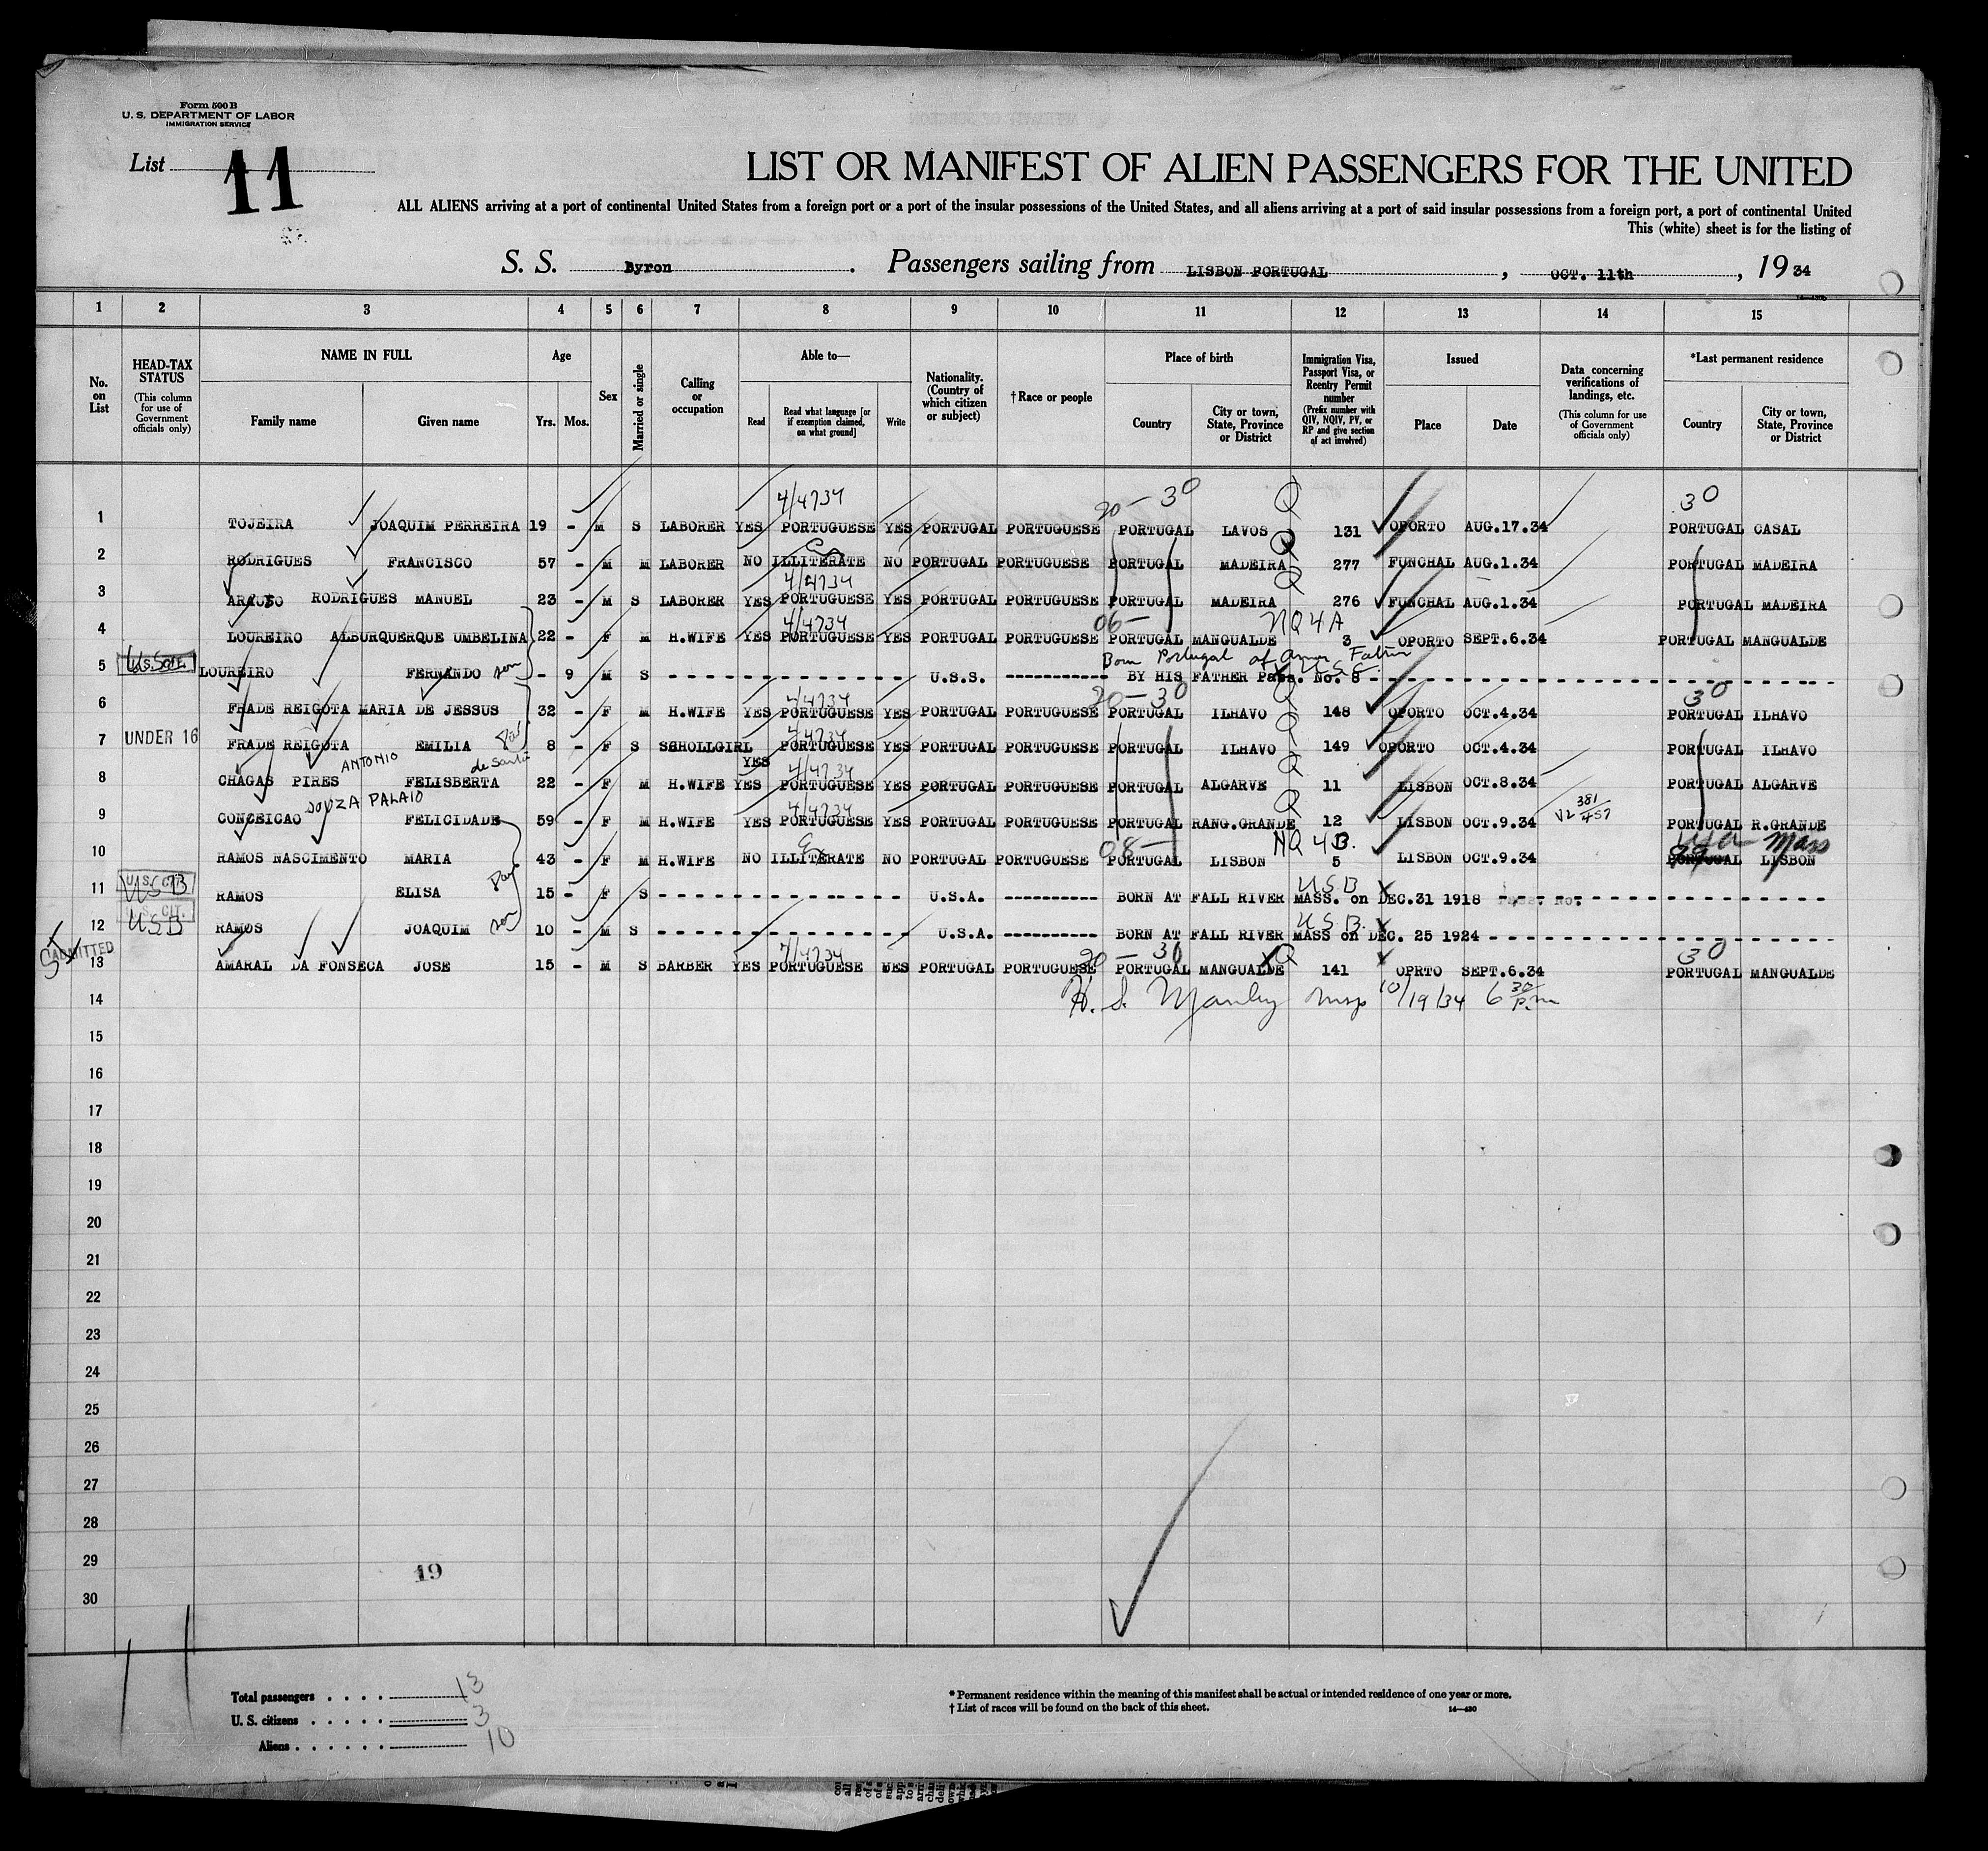 Form 500 B
U. S. DEPARTMENT OF LABOR
IMMIGRATION SERVICE
List 11
LIST OR MANIFEST OF ALIEN PASSENGERS FOR THE UNITED
ALL ALIENS arriving at a port of continental United States from a foreign port or a port of the insular possessions of the United States, and all aliens arriving at a port of said insular possessions from a foreign port, a port of continental United
This (white) sheet is for the listing of
S. S. Byron. Passengers sailing from LISBON PORTUGAL, OCT. 11th, 1934
1 2 3 4 5 6 7 8 9 10 11 12 13 14 15
No. on List
HEAD-TAX STATUS (This column for use of Government officials only)
NAME IN FULL Family name Given name
Age Yrs. Mos.
Sex
Married or single
Calling or occupation
Able to— Read Read what language [or if exemption claimed, on what ground] Write
Nationality. (Country of which citizen or subject)
†Race or people
Place of birth Country City or town, State, Province or District
Immigration Visa, Passport Visa, or Reentry Permit number (Prefix number with QIV, NQIV, PV, or RP and give section of act involved)
Issued Place Date
Data concerning verifications of landings, etc. (This column for use of Government officials only)
*Last permanent residence Country City or town, State, Province or District
4/4734 20-30 Q 30
1 TOJEIRA JOAQUIM PERREIRA 19 - M S LABORER YES PORTUGUESE YES PORTUGAL PORTUGUESE PORTUGAL LAVOS 131 OPORTO AUG.17.34 PORTUGAL CASAL
Q
2 RODRIGUES FRANCISCO 57 - M M LABORER NO ILLITERATE NO PORTUGAL PORTUGUESE PORTUGAL MADEIRA 277 FUNCHAL AUG.1.34 PORTUGAL MADEIRA
4/4734 Q
3 ARAUJO RODRIGUES MANUEL 23 - M S LABORER YES PORTUGUESE YES PORTUGAL PORTUGUESE PORTUGAL MADEIRA 276 FUNCHAL AUG.1.34 PORTUGAL MADEIRA
4/4734 06- NQ4A
4 LOUREIRO ALBURQUERQUE UMBELINA 22 - F M H.WIFE YES PORTUGUESE YES PORTUGAL PORTUGUESE PORTUGAL MANGUALDE 3 OPORTO SEPT.6.34 PORTUGAL MANGUALDE
Born Portugal of Amer Father
5 LOUREIRO FERNANDO son - 9 M S U.S.S. BY HIS FATHER Pass. No. 8
4/4734 20-30 Q 30
6 FRADE REIGOTA MARIA DE JESSUS 32 - F M H.WIFE YES PORTUGUESE YES PORTUGAL PORTUGUESE PORTUGAL ILHAVO 148 OPORTO OCT.4.34 PORTUGAL ILHAVO
4/4734 Q
7 UNDER 16 FRADE REIGOTA EMILIA 8 - F S SCHOLLGIRL YES PORTUGUESE YES PORTUGAL PORTUGUESE PORTUGAL ILHAVO 149 OPORTO OCT.4.34 PORTUGAL ILHAVO
ANTONIO 4/4734 Q
8 CHAGAS PIRES FELISBERTA 22 - F M H.WIFE YES PORTUGUESE YES PORTUGAL PORTUGUESE PORTUGAL ALGARVE 11 LISBON OCT.8.34 PORTUGAL ALGARVE
SOUZA PALAIO 4/4734 Q
9 CONCEICAO FELICIDADE 59 - F M H.WIFE YES PORTUGUESE YES PORTUGAL PORTUGUESE PORTUGAL RANG.GRANDE 12 LISBON OCT.9.34 PORTUGAL R.GRANDE
08- NQ4B. Mass
10 RAMOS NASCIMENTO MARIA 43 - F M H.WIFE NO ILLITERATE NO PORTUGAL PORTUGUESE PORTUGAL LISBON 5 LISBON OCT.9.34 PORTUGAL LISBON
U.S. CIT. USB USB
11 RAMOS ELISA 15 - F S U.S.A. BORN AT FALL RIVER MASS. on DEC.31 1918
U.S. CIT. USB USB.
12 RAMOS JOAQUIM son 10 - M S U.S.A. BORN AT FALL RIVER MASS on DEC. 25 1924
ADMITTED 4/4734 20-30 Q 30
13 AMARAL DA FONSECA JOSE 15 - M S BARBER YES PORTUGUESE YES PORTUGAL PORTUGUESE PORTUGAL MANGUALDE 141 OPRTO SEPT.6.34 PORTUGAL MANGUALDE
14 H. S. Manley Insp 10/19/34 6 30 Pm
15
16
17
18
19
20
21
22
23
24
25
26
27
28
29
19
30
Total passengers 13
U. S. citizens 3
Aliens 10
* Permanent residence within the meaning of this manifest shall be actual or intended residence of one year or more.
† List of races will be found on the back of this sheet.
14—430